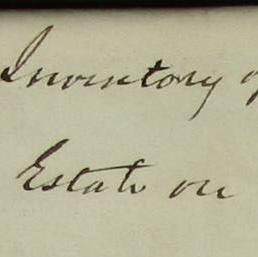 Inventory of
Estate on